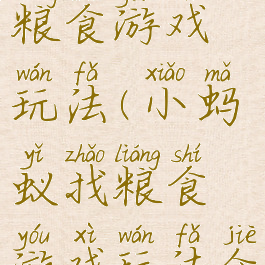 粮食游戏
wán fǎ xiǎo mǎ
玩法(小蚂
yǐ zhǎo liáng shí
蚁找粮食
yóu xì wán fǎ jiē
游戏玩法介